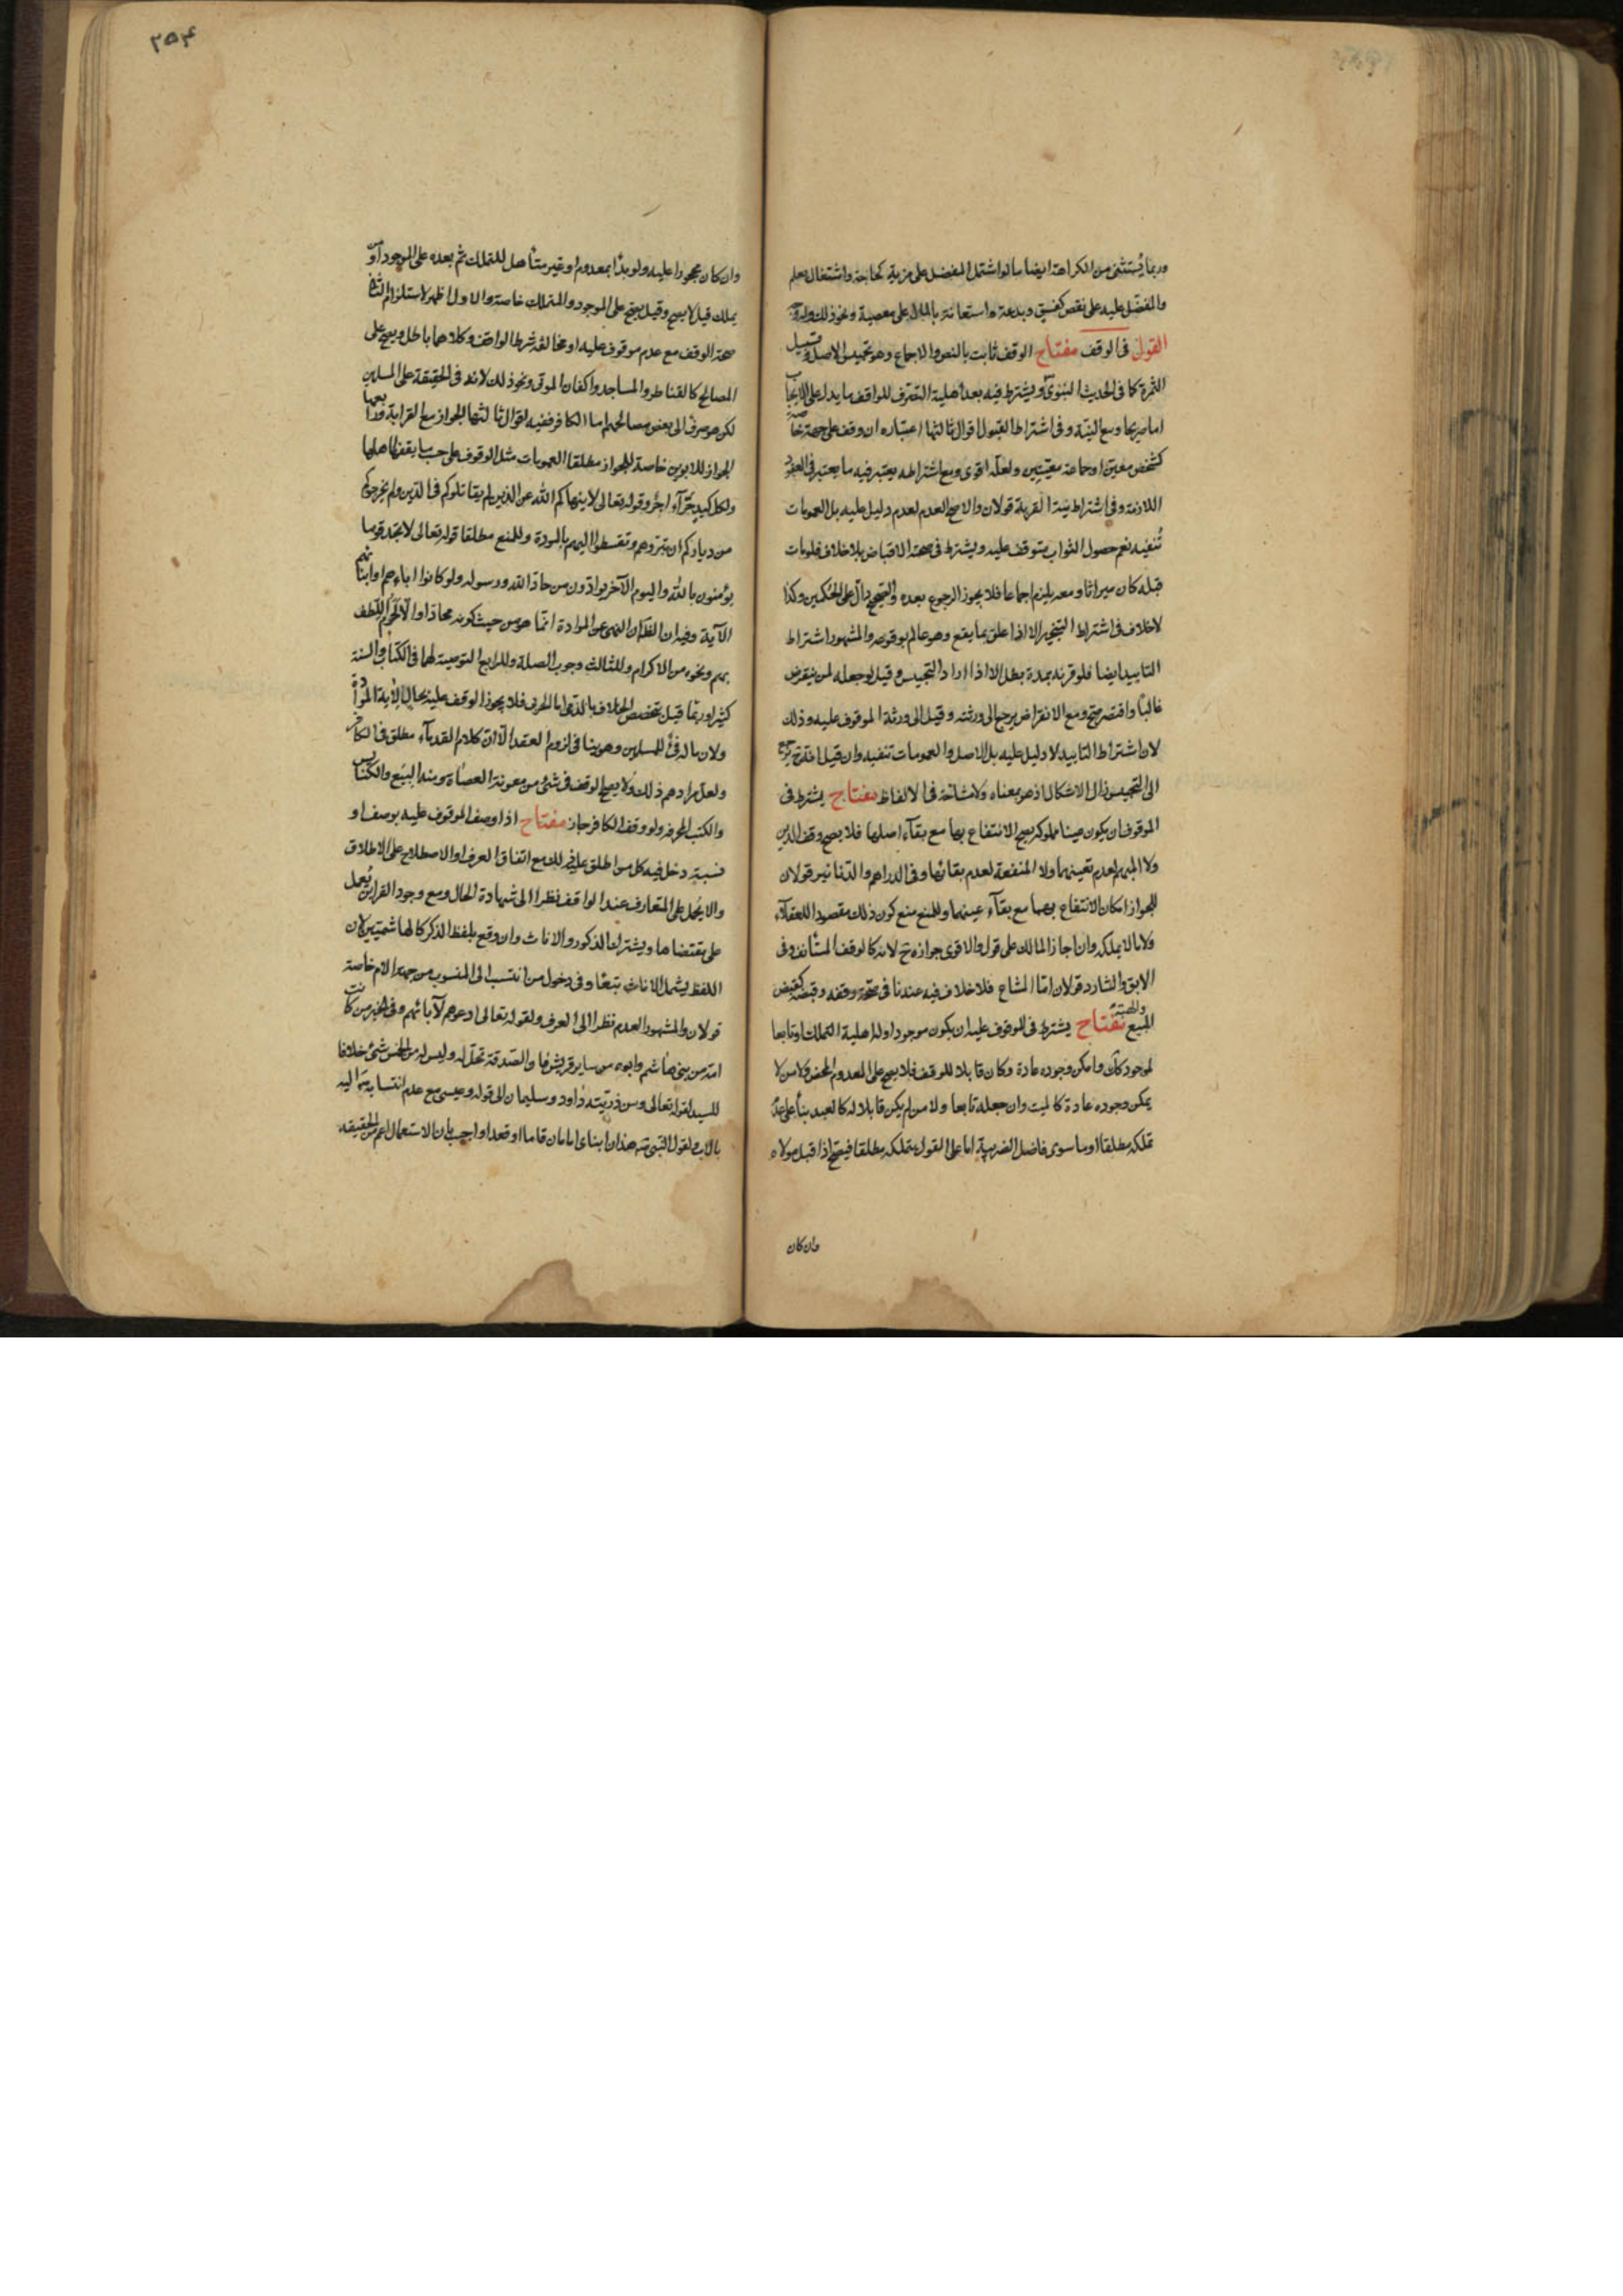 وربما يُستثنى من الكراهة ايضا ما لو اشتمل المفضل على مزية كحاجة واشتغال بعلم
والمفضّل عليه على نقص كفسق وبدعة واستعانة بالمال على معصية ونحو ذلك وله وجه
القول فى الوقف مفتاح الوقف ثابت بالنص والاجماع وهو تحبيس الاصل وتسبيل
الثمرة كما فى الحديث النبوى ويشترط فيه بعد أهلية التصرف للواقف ما يدل على الايجاب
اما صريحا او مع النية وفى اشتراط القبول اقوال ثالثها اعتباره ان وقف على جهة خاصة
كشخص معين او جماعة معيّنين ولعله اقوى ومع اشتراطه يعتبر فيه ما يعتبر فى العقود
اللازمة وفى اشتراط نية القربة قولان والاصح العدم لعدم دليل عليه بل العمومات
تُنفيه نعم حصول الثواب يتوقف عليه ويشترط فى صحته الاقباض بلا خلاف فلو مات
قبله كان ميراثا ومعه يلزم اجماعا فلا يجوز الرجوع بعده والصحيح دالّ على الحكمين وكذا
لا خلاف فى اشتراط التنجيز الا اذا علق بما يقع وهو عالم بوقوعه والمشهور اشتراط
التابيد ايضا فلو قرنه بمدة بطل الا اذا اراد التحبيس وقيل لو جعله لمن ينقرض
غالبًا واقتصر صح ومع الانقراض يرجع الى ورثته وقيل الى ورثة الموقوف عليه وذلك
لان اشتراط التابيد لا دليل عليه بل الاصل والعمومات تنفيه وان قيل انه ح يرجع
الى التحبيس زال الاشكال اذ هو بمعناه ولا مشاحّة فى الالفاظ مفتاح يشترط فى
الموقوف ان يكون عينا مملوكة يصح الانتفاع بها مع بقاء اصلها فلا يصح وقف الدين
ولا المبهم لعدم تعينهما ولا المنفعة لعدم بقائها وفى الدراهم والدنانير قولان
للجواز امكان الانتفاع بهما مع بقاء عينهما وللمنع منع كون ذلك مقصودا للعقلاء
ولا ما لا يملكه وان اجاز المالك على قول والاقوى جوازه ح لانه كالوقف المستأنف وفى
الابق والشارد قولان امّا المشاع فلا خلاف فيه عندنا فى صحّة وقفه وقبضه كقبض
المبيع والهبة مفتاح يشترط فى الموقوف عليه ان يكون موجودا وله اهلية التملك او تابعا
لموجود كان وامكن وجوده عادة وكان قابلا للوقف فلا يصح على المعدوم المحض ولا من لا
يمكن وجوده عادة كالميت وان جعله تابعا ولا من لم يكن قابلا له كالعبد بناء على عدم
تملكه مطلقا او ما سوى فاضل الضريبة اما على القول بتملكه مطلقا فيصح اذا قبل مولاه
وان كان
٢٥۴
وان كان محجورا عليه ولو بدأ بمعدوم او غير متأهل للتملك ثم بعده على الموجود او من
يملك قيل لا يصح وقيل يصح على الموجود والمتملك خاصة والاول اظهر لاستلزام الثانى
صحة الوقف مع عدم موقوف عليه او مخالفة شرط الواقف وكلاهما باطل ويصح على
المصالح كالقناطر والمساجد واكفان الموتى ونحو ذلك لانه فى الحقيقة على المسلمين
لكن هو صرف الى بعض مصالحهم اما الكافر ففيه اقوال ثالثها الجواز مع القرابة ورابعها
الجواز للابوين خاصة للجواز مطلقا العمومات مثل الوقوف على حسب ما يقفها اهلها
ولكل كبد حَرّاء اجر وقوله تعالى لا ينهاكم الله عن الذين لم يقاتلوكم فى الدين ولم يخرجوكم
من دياركم ان تبروهم وتقسطوا اليهم بالمودة وللمنع مطلقا قوله تعالى لا تجد قوما
يؤمنون بالله واليوم الآخر يوادون من حادّ الله ورسوله ولو كانوا اباءهم او ابناءهم
الآية وفيه ان الظاهر ان النهى عن الموادة انما هو من حيث كونه محادا والا لحرم اللطف
بهم ونحوه من الاكرام وللثالث وجوب الصلة وللرابع التوصية لهما فى الكتاب والسنة
كثيرا وربما قيل بتخصص الخلاف بالذمى اما الحربى فلا يجوز الوقف عليه بحال لآية الموادة
ولان ماله فئ للمسلمين وهو ينافى لزوم العقد الا ان كلام القدماء مطلق فى الكافر
ولعل مرادهم ذلك ولا يصح الوقف فى شئ من معونة العصاة ومنه البيَع والكنائس
والكتب المحرفة ولو وقف الكافر جاز مفتاح اذا وصف الموقوف عليه بوصف او
نسبة دخل فيه كل من اطلق عليه ذلك مع اتفاق العرف او الاصطلاح على الاطلاق
والا يحمل على المتعارف عند الواقف نظرا الى شهادة الحال ومع وجود القرائن يُعمل
على مقتضاها ويشترك الذكور والاناث وان وقع بلفظ الذكر كالهاشميين لان
اللفظ يشمل الاناث تبعًا وفى دخول من انتسب الى المنسوب من جهة الام خاصة
قولان والمشهور العدم نظرا الى العرف ولقوله تعالى ادعوهم لآبائهم وفى الخبر من كانت
امه من بنى هاشم وابوه من ساير قريش فان الصّدقة تحلّ له وليس له من الخمس شئ خلافا
للسيد لقوله تعالى ومن ذريته داود وسليمان الى قوله وعيسى مع عدم انتسابه اليه
بالاب ولقول النبى ص هذان ابناى امامان قاما او قعدا واجيب بان الاستعمال اعم من الحقيقة